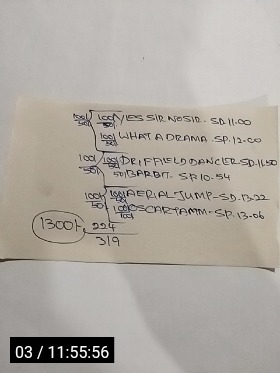 100/50 100/50 YES SIR NO SIR - SP. 11.00
100/50 WHAT A DRAMA. SP. 12-00
100/50 100/50 DRIFFIELD DANCER SD. 11.50
50 BARBIT - SP. 10-54
100/50 100/50 AERIAL JUMP - SD - 13-22
100/100 OSCAR TAMM - SP. 13-06
1300/-
224
319
03 / 11:55:56